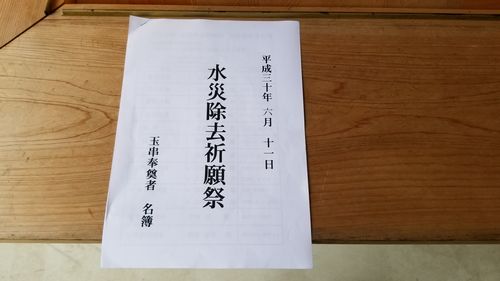 平成三十年 六月 十一日
水災除去祈願祭
玉串奉奠者 名簿